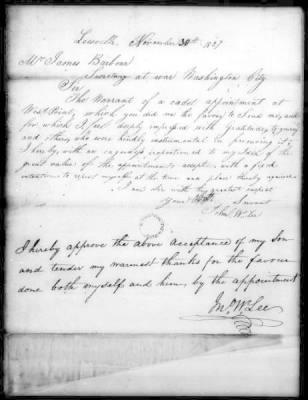 November 30th 1827
Mr James Barbour
Secretary at war Washington City
Sir
The Warrant of a cadet appointment at
West Point, which you did me the favor to send me, and
for which I feel deeply impressed with gratitude to you
and others, who were kindly instrumental in procuring it,
I hereby with an eagerness proportioned to my sense of the
great value of the appointment, accept, with a fixed
intention to report myself at the time and place thereby required
I am Sir with the greatest respect
Your Obt
Servant
John W. Lee
I hereby approve the above acceptance of my Son
and tender my warmest thanks for the favour
done both myself and him, by the appointment
Jno. W. Lee